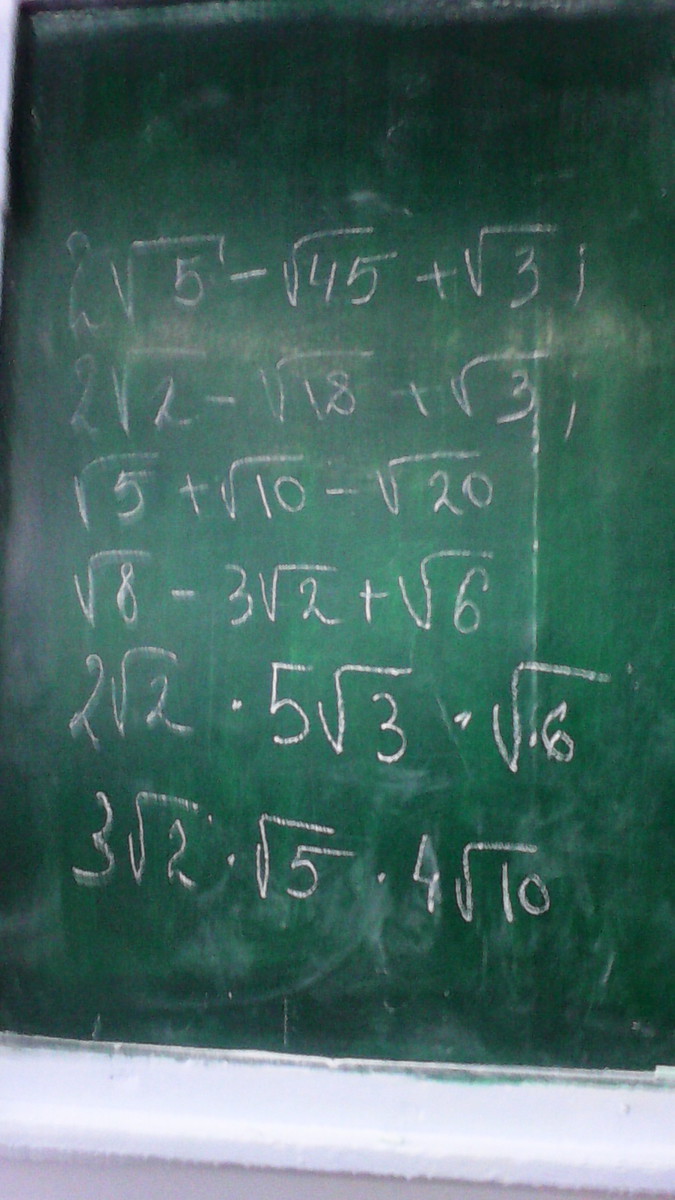 2√5 - √45 + √3;
2√2 - √18 + √3,
√5 + √10 - √20
√8 - 3√2 + √6
2√2 · 5√3 · √6
3√2 · √5 · 4√10